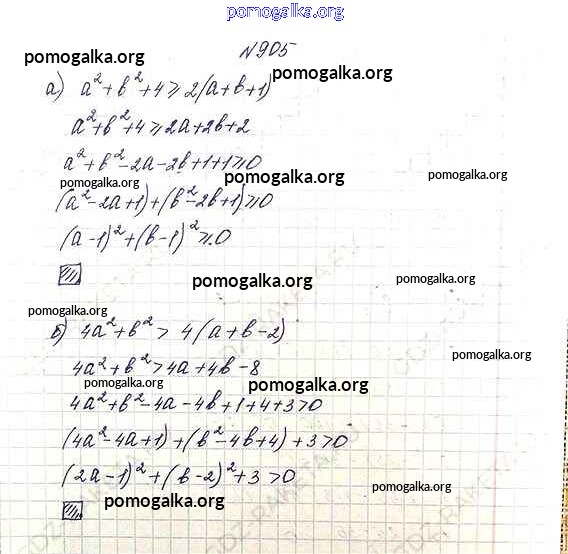 pomogalka.org
N 905
pomogalka.org
pomogalka.org
а) a² + b² + 4 ≥ 2(a + b + 1)
a² + b² + 4 ≥ 2a + 2b + 2
a² + b² - 2a - 2b + 1 + 1 ≥ 0
pomogalka.org pomogalka.org pomogalka.org
(a² - 2a + 1) + (b² - 2b + 1) ≥ 0
(a - 1)² + (b - 1)² ≥ 0
pomogalka.org pomogalka.org
pomogalka.org
б) 4a² + b² > 4(a + b - 2)
pomogalka.org
4a² + b² > 4a + 4b - 8
pomogalka.org pomogalka.org
4a² + b² - 4a - 4b + 1 + 4 + 3 > 0
(4a² - 4a + 1) + (b² - 4b + 4) + 3 > 0
(2a - 1)² + (b - 2)² + 3 > 0
pomogalka.org
pomogalka.org